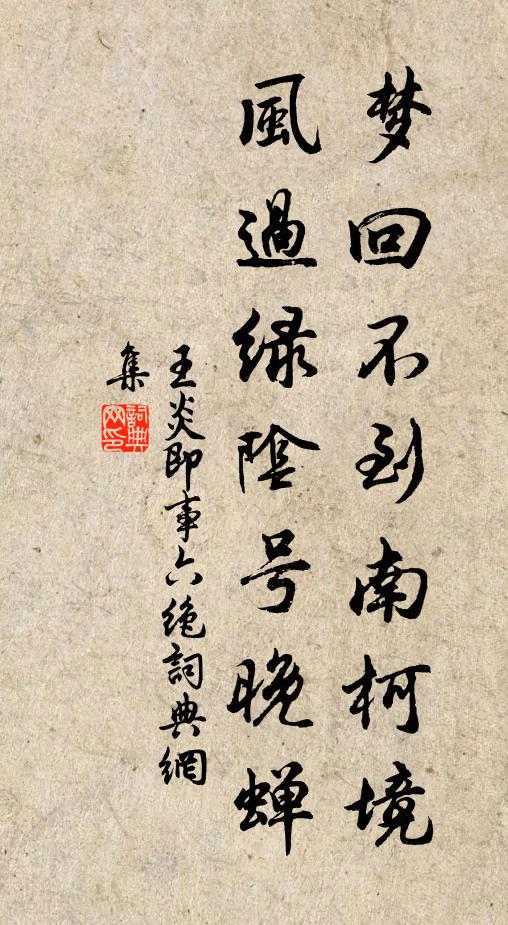 梦回不到南柯境
風過绿陰号晚蝉
王炎即事六绝詞典網
集
詞典网印